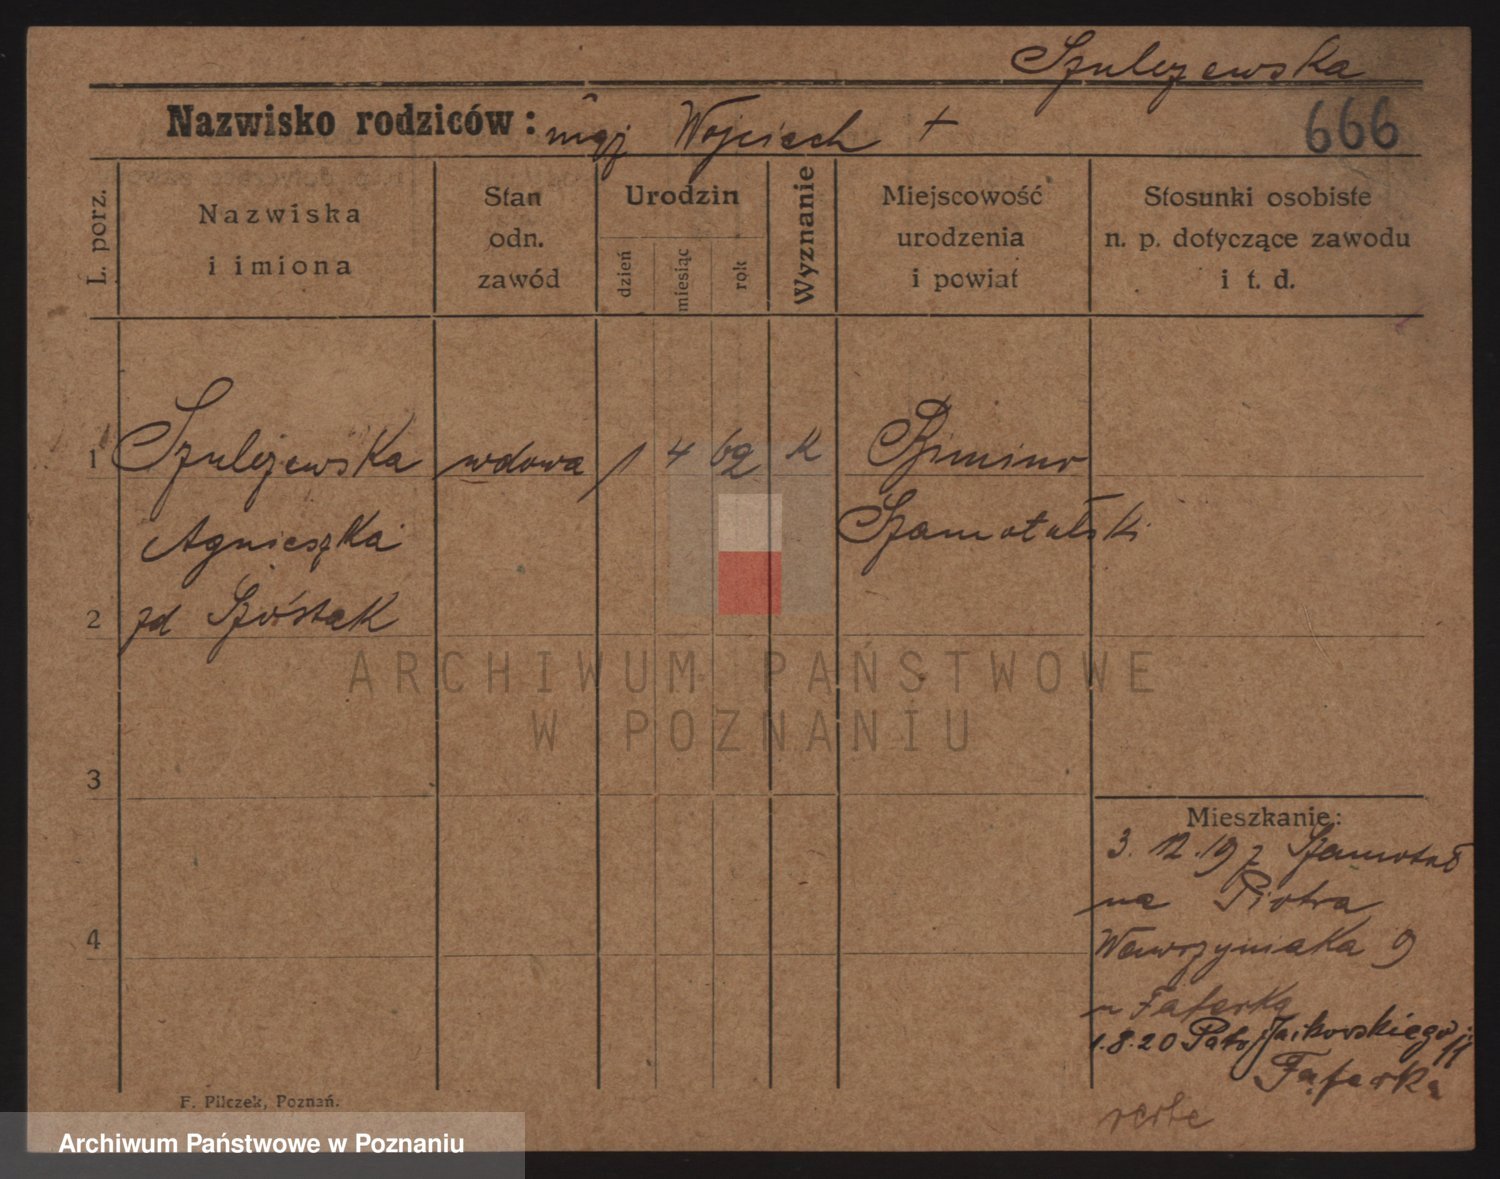 Szulczewska
Nazwisko rodziców: mąż Wojciech +
666
L. porz.
Nazwiska
i imiona
Stan
odn.
zawód
Urodzin
dzień
miesiąc
rok
Wyznanie
Miejscowość
urodzenia
i powiat
Stosunki osobiste
n. p. dotyczące zawodu
i t. d.
1 Szulczewska wdowa 1 4 62 k
Szamotulski
Agnieszka
2 zd Szóstak
3
4
Mieszkanie:
3. 12. 19 z Szamotuł
na Piotra
Wawrzyniaka 9
u Fąferka
1.8.20 Jackowskiego
Fąferka
verte
F. Pilczek, Poznań.
ARCHIWUM PAŃSTWOWE
W POZNANIU
Archiwum Państwowe w Poznaniu